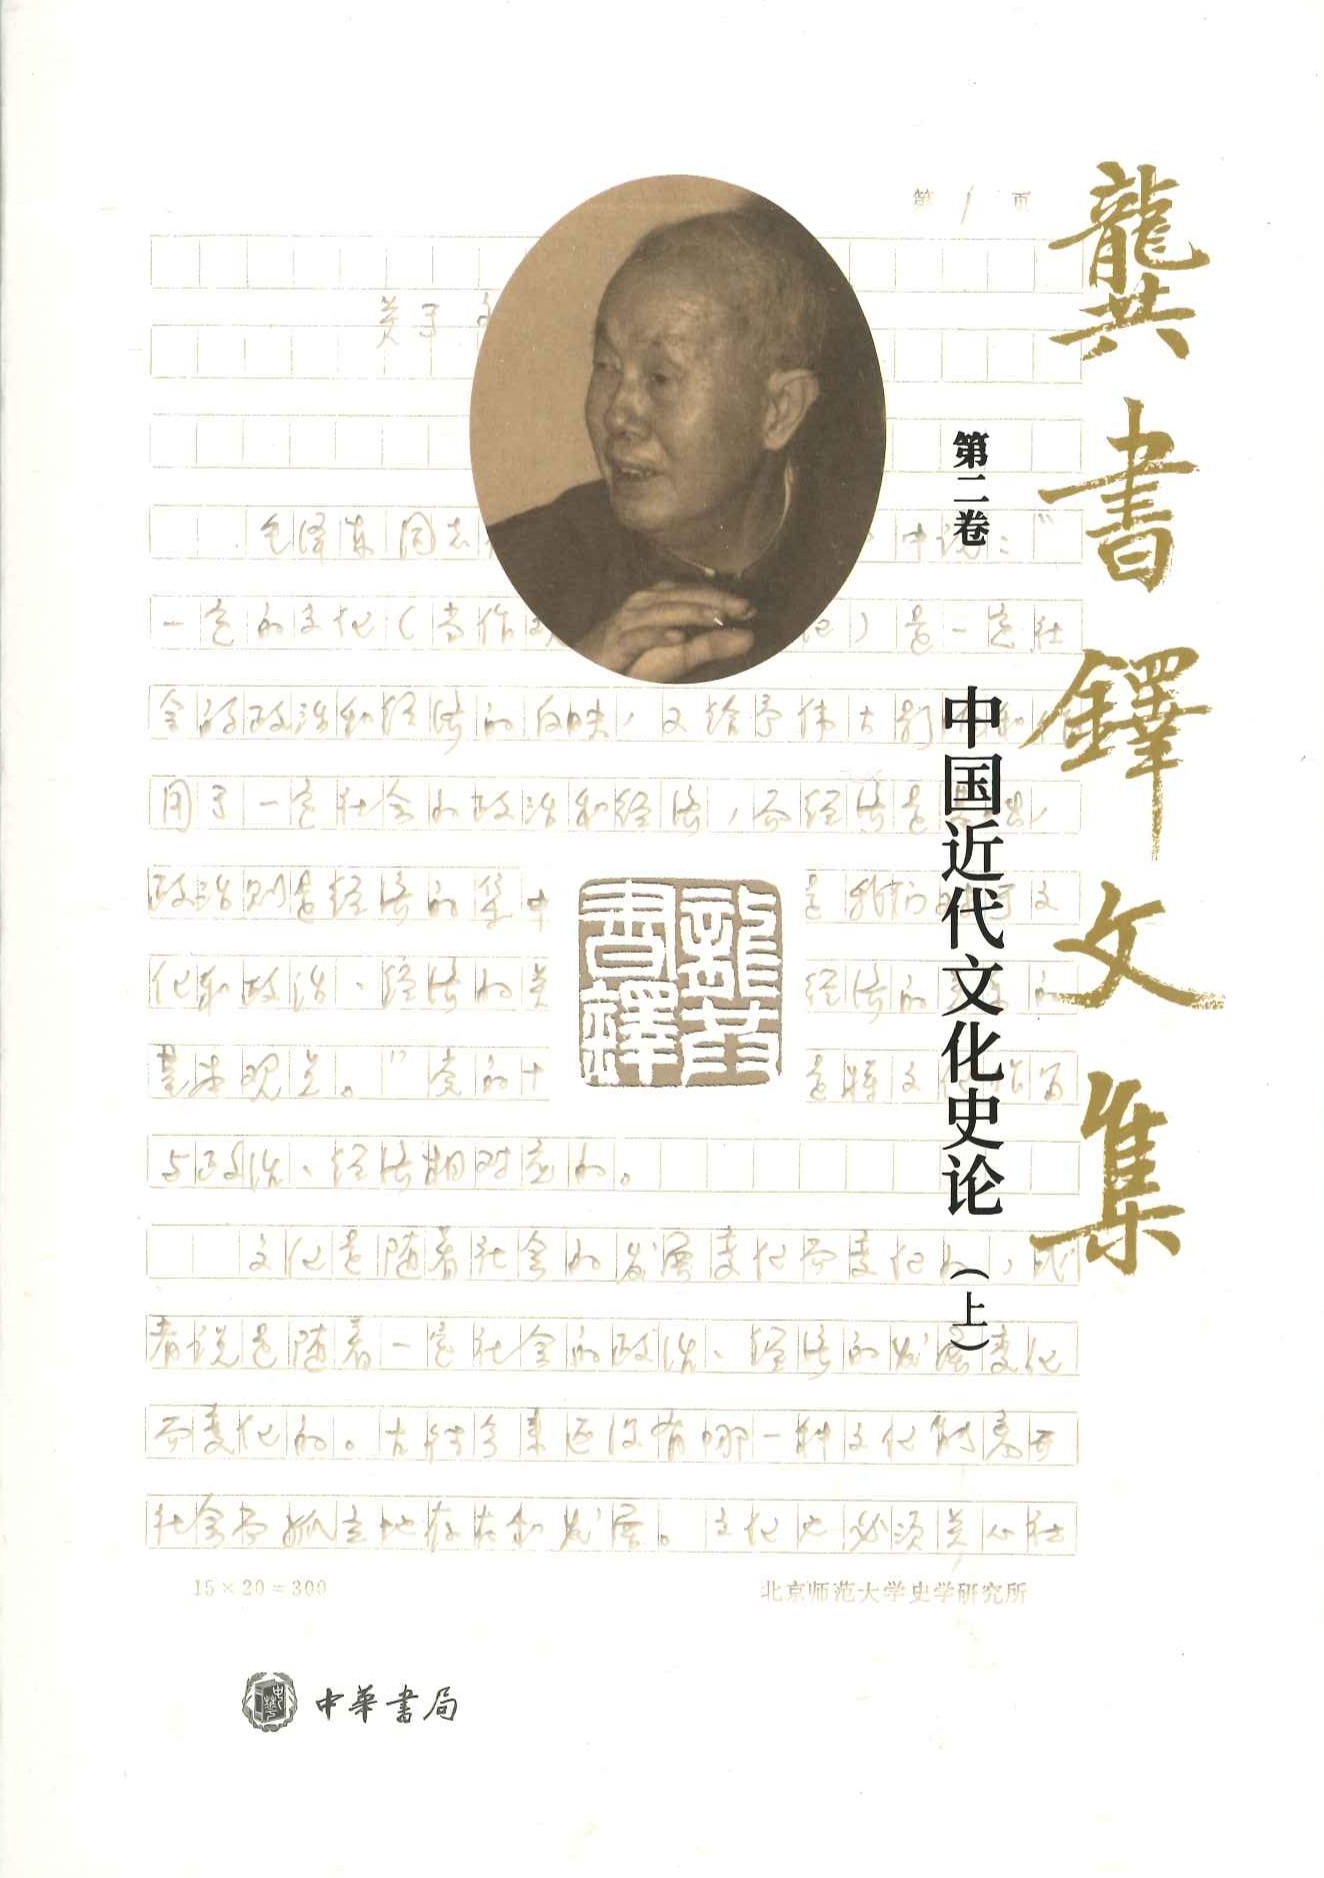 龔書鐸文集
第二卷
中国近代文化史论(上)
第1页
关于文
毛泽东同志 中说:“
一定的文化(当作观 化)是一定社
会的政治和经济的反映,又给予伟大影响和作
用于一定社会的政治和经济,而经济是基础,
政治则是经济的集中 是我们对于文
化和政治、经济的关 经济的关系的
基本观点。”党的十 是将文化作为
与政治、经济相对应的。
文化是随着社会的发展变化而变化的,或
者说是随着一定社会的政治、经济的发展变化
而变化的。古往今来还没有哪一种文化能离开
社会而孤立地存在和发展。文化也必须关心社
龔書鐸
15×20=300
北京师范大学史学研究所
中華書局